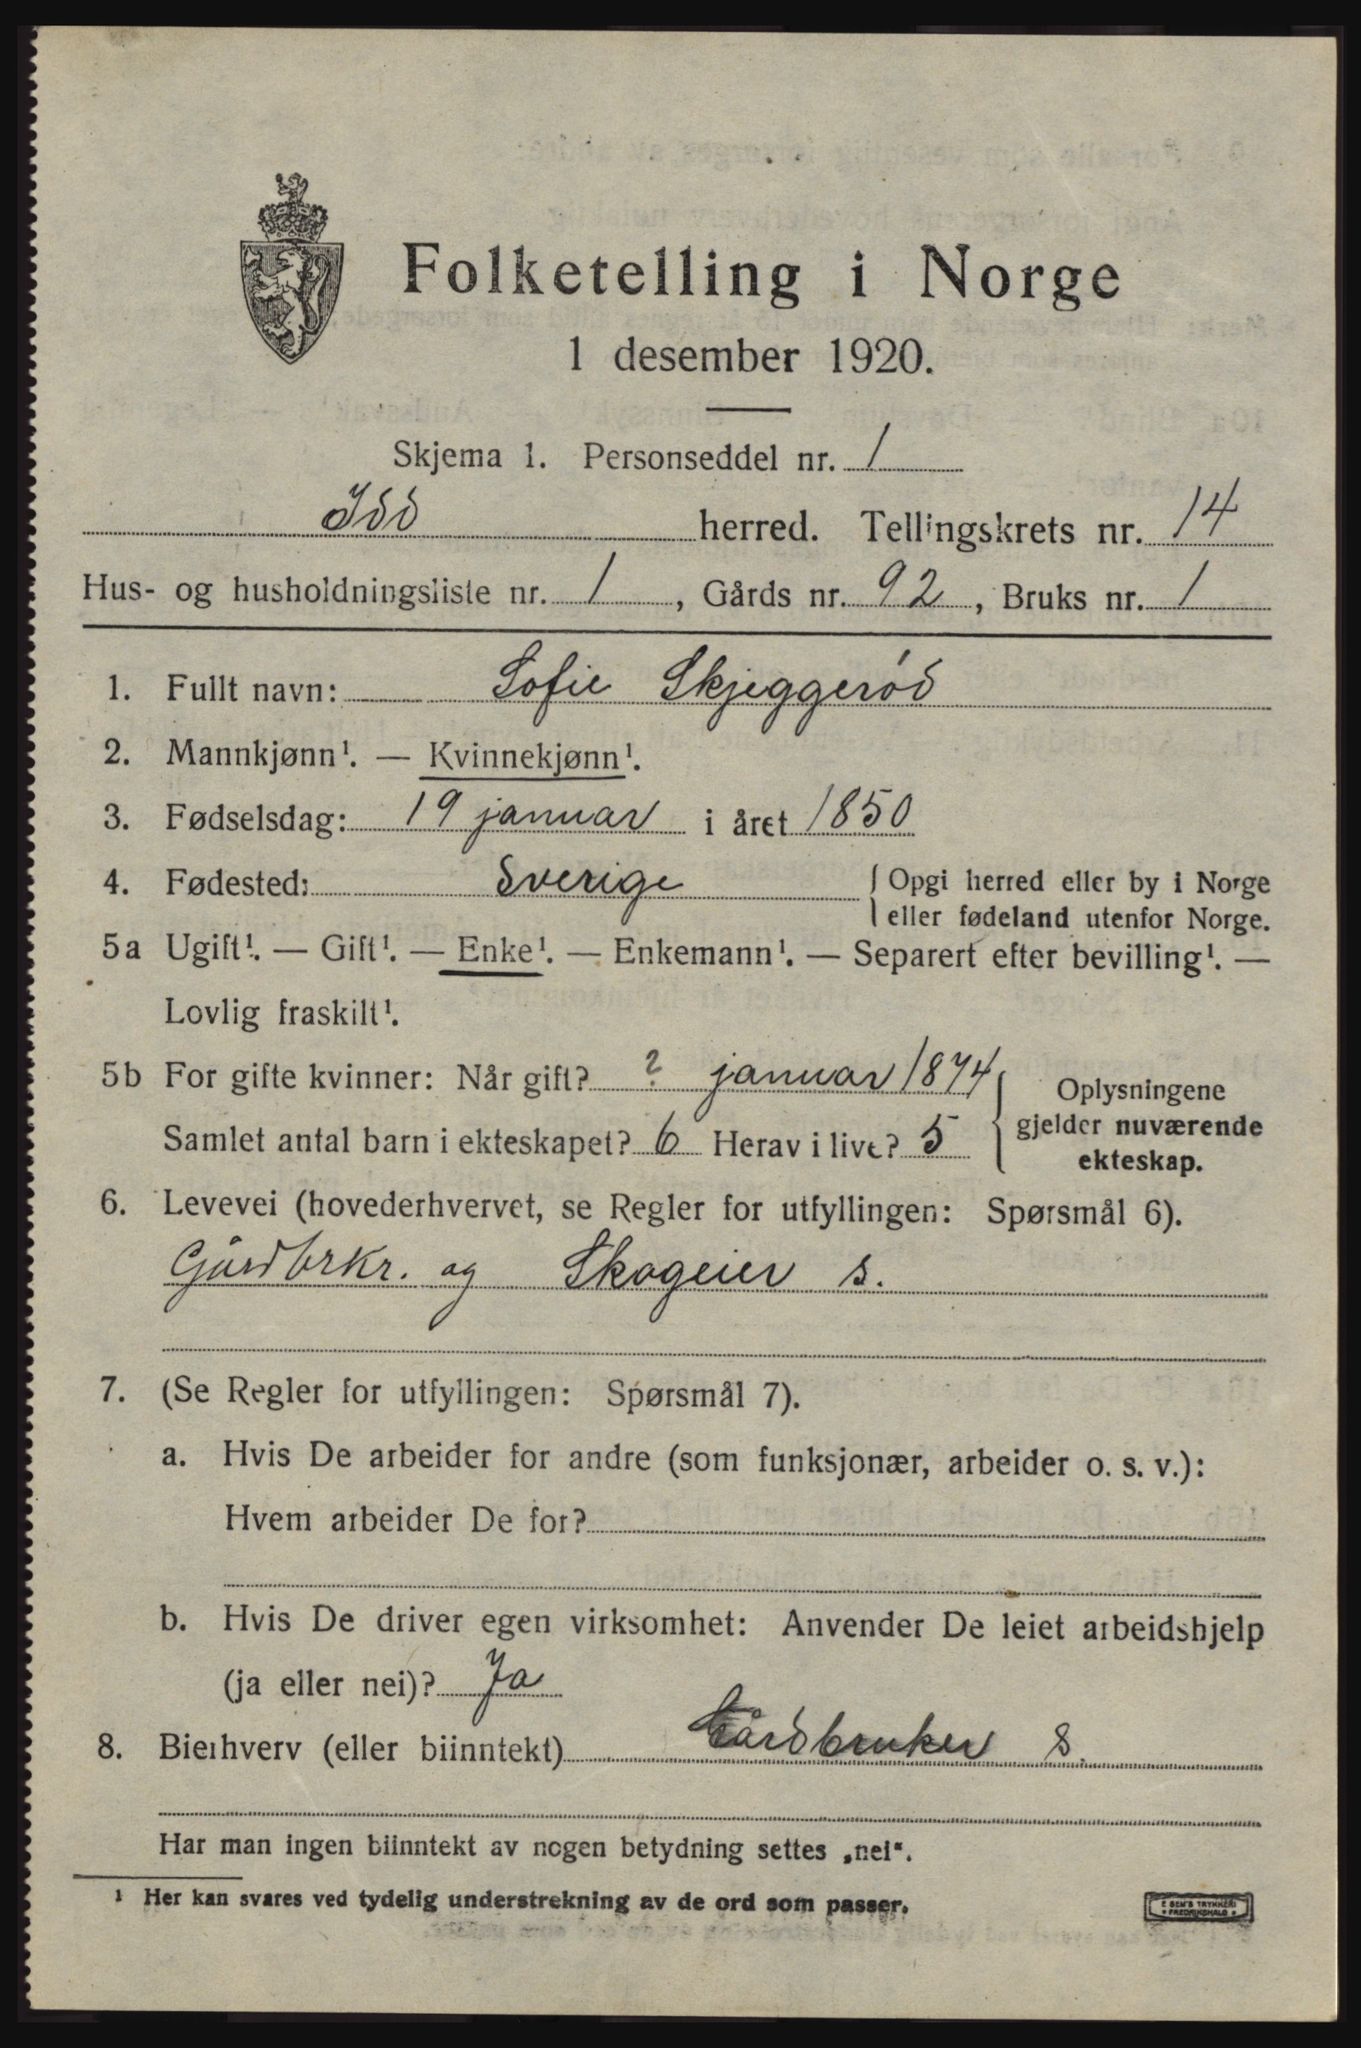 Folketelling i Norge
1 desember 1920.
Skjema 1. Personseddel nr. 1
Idd herred. Tellingskrets nr. 14
Hus- og husholdningsliste nr. 1, Gårds nr. 92, Bruks nr. 1
1. Fullt navn: Sofie Skjeggerød
2. Mannkjønn¹. — Kvinnekjønn¹.
3. Fødselsdag: 19 januar i året 1850
4. Fødested: Sverige { Opgi herred eller by i Norge
eller fødeland utenfor Norge.
5a Ugift¹. — Gift¹. — Enke¹. — Enkemann¹. — Separert efter bevilling¹. —
Lovlig fraskilt¹.
5b For gifte kvinner: Når gift? ? januar 1874
Samlet antal barn i ekteskapet? 6 Herav i live? 5
{ Oplysningene
gjelder nuværende
ekteskap.
6. Levevei (hovederhvervet, se Regler for utfyllingen: Spørsmål 6).
Gårdbrkr. og Skogeier s.
7. (Se Regler for utfyllingen: Spørsmål 7).
a. Hvis De arbeider for andre (som funksjonær, arbeider o. s. v.):
Hvem arbeider De for?
b. Hvis De driver egen virksomhet: Anvender De leiet arbeidshjelp
(ja eller nei)? Ja
8. Bierhverv (eller biinntekt) Gårdbruker s.
Har man ingen biinntekt av nogen betydning settes „nei“.
¹ Her kan svares ved tydelig understrekning av de ord som passer.
E SEM'S TRYKKERI
FREDRIKSHALD